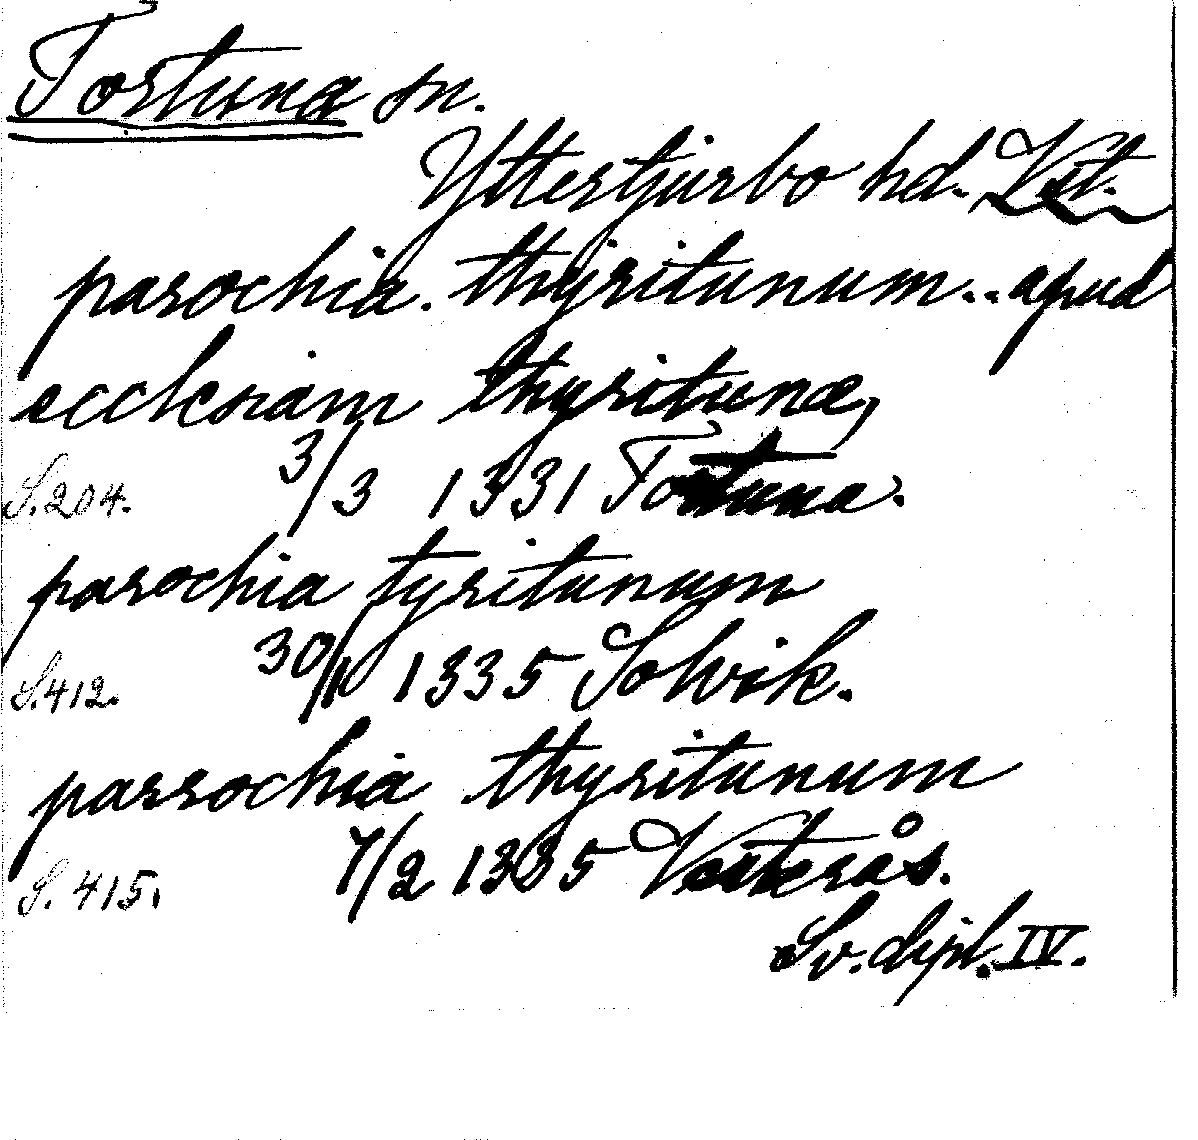 Tortuna sn.
Yttertjurbo hd. Vst.
parochia. thyritunum... apud
ecclesiam thyrituna,
S. 204. 3/3 1331 Tortuna.
parochia tyritunum
S. 412. 30/1 1335 Solvik.
parrochia thyritunum
S. 415. 7/2 1335 Västerås.
Sv. dipl. IV.